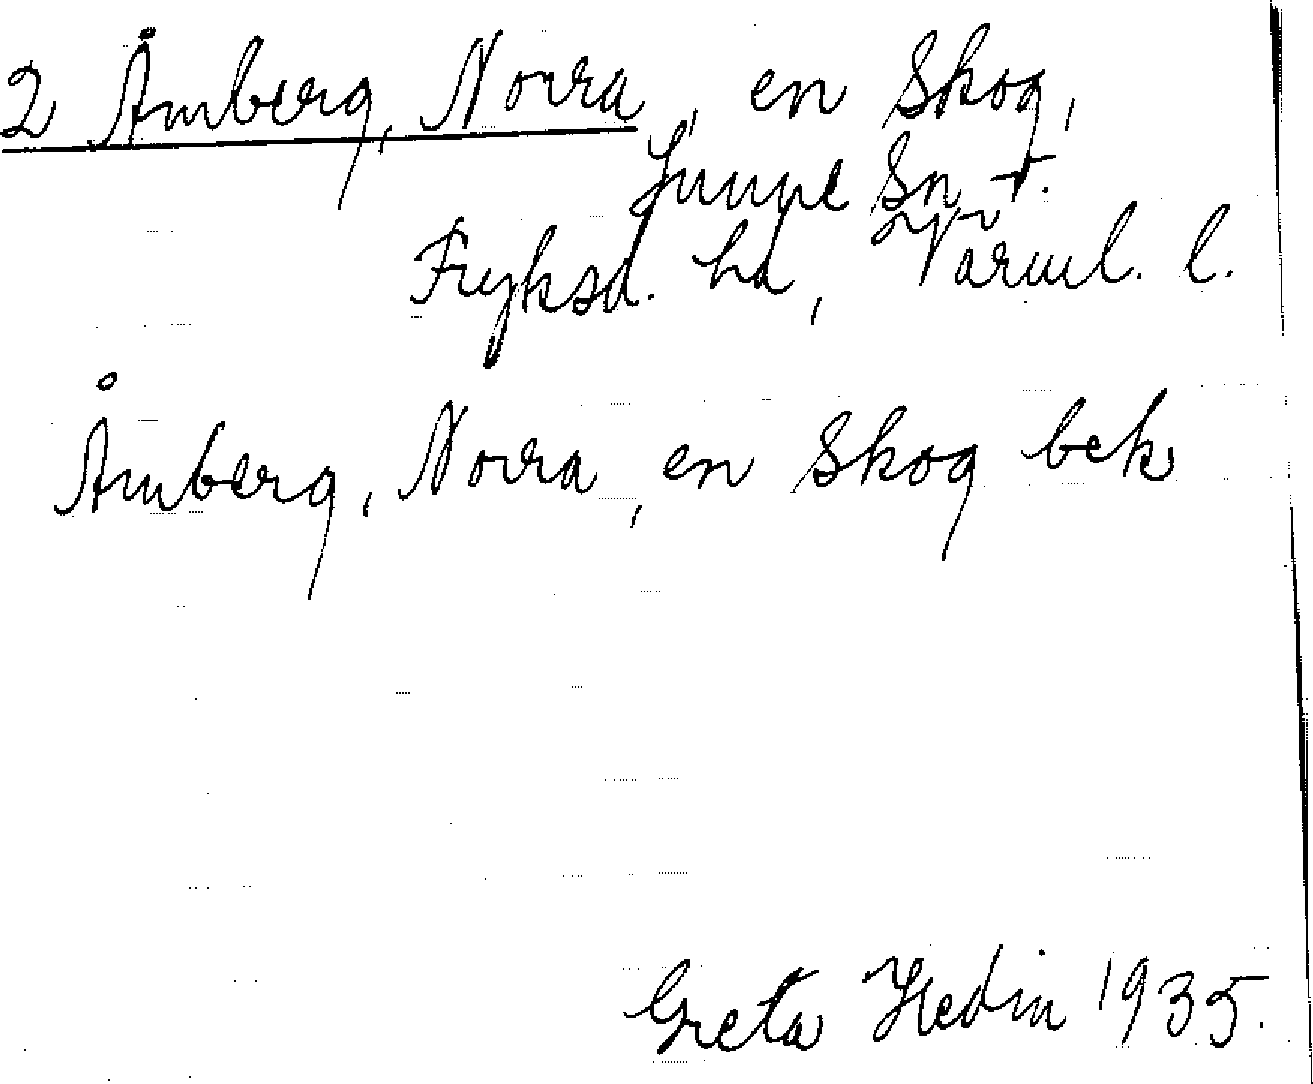 2 Åmberg, Norra, en skog,
Sunne Sn
Fryksd. hd, Värml. l.
Åmberg, Norra, en skog bek
Greta Hedin 1935.